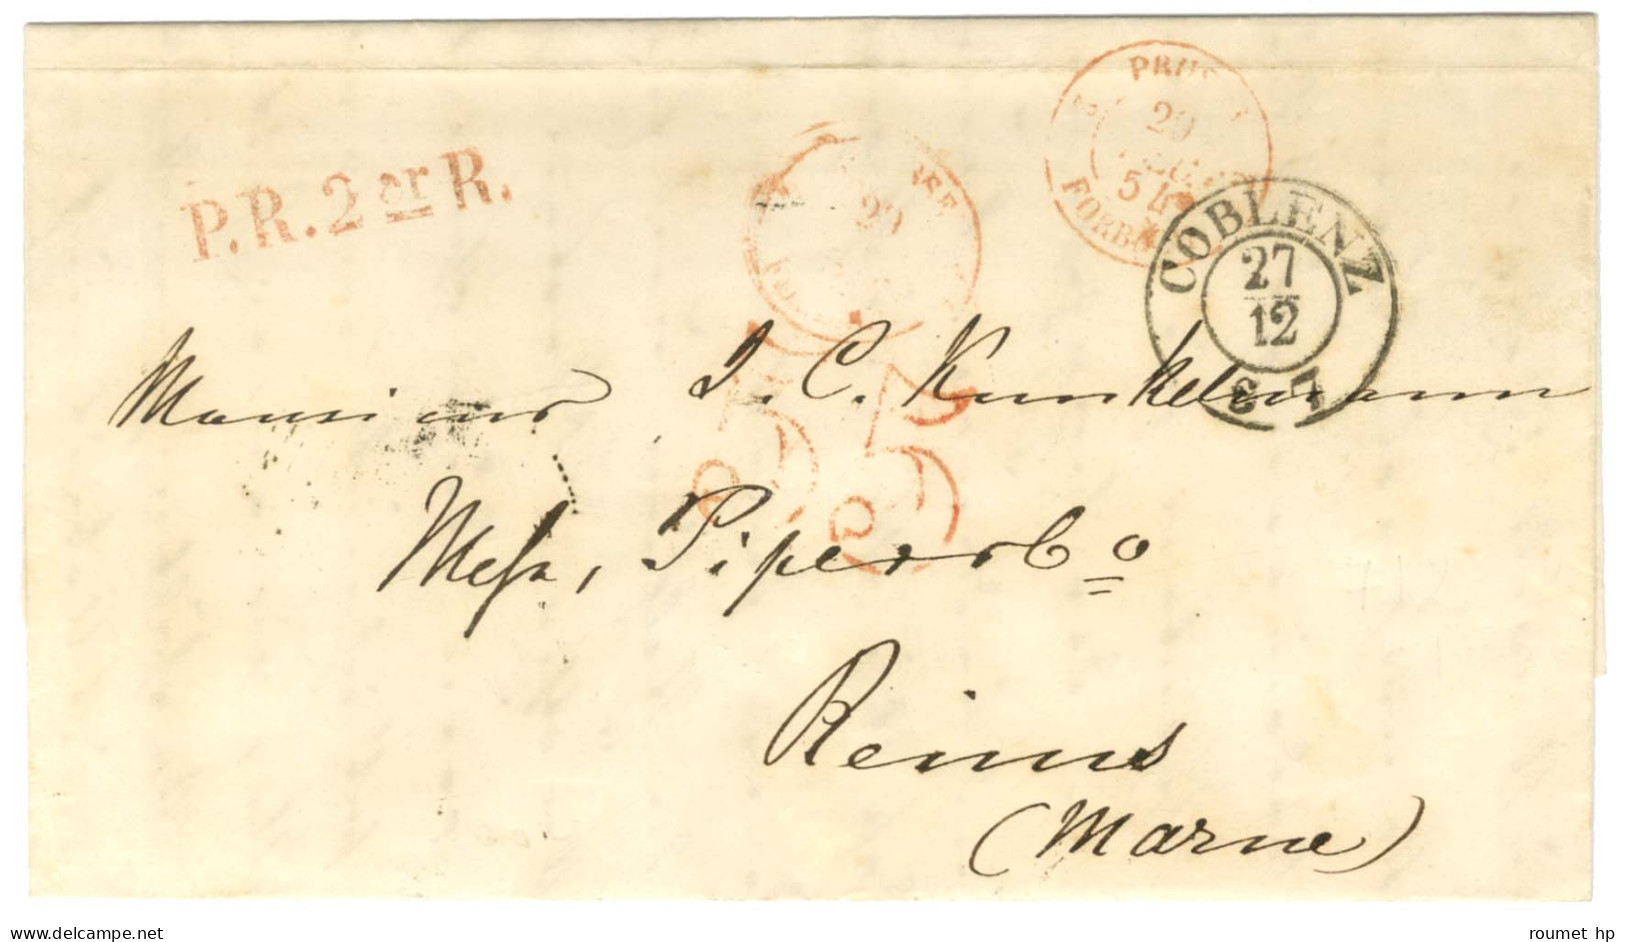 P.R.2 er R.
PRUS
29
5
FORB
29
COBLENZ
27
12
6-7
Monsieur J. C. Kunkelmann
Messr, Piper & Co
Reims
(Marne)
roumet hp